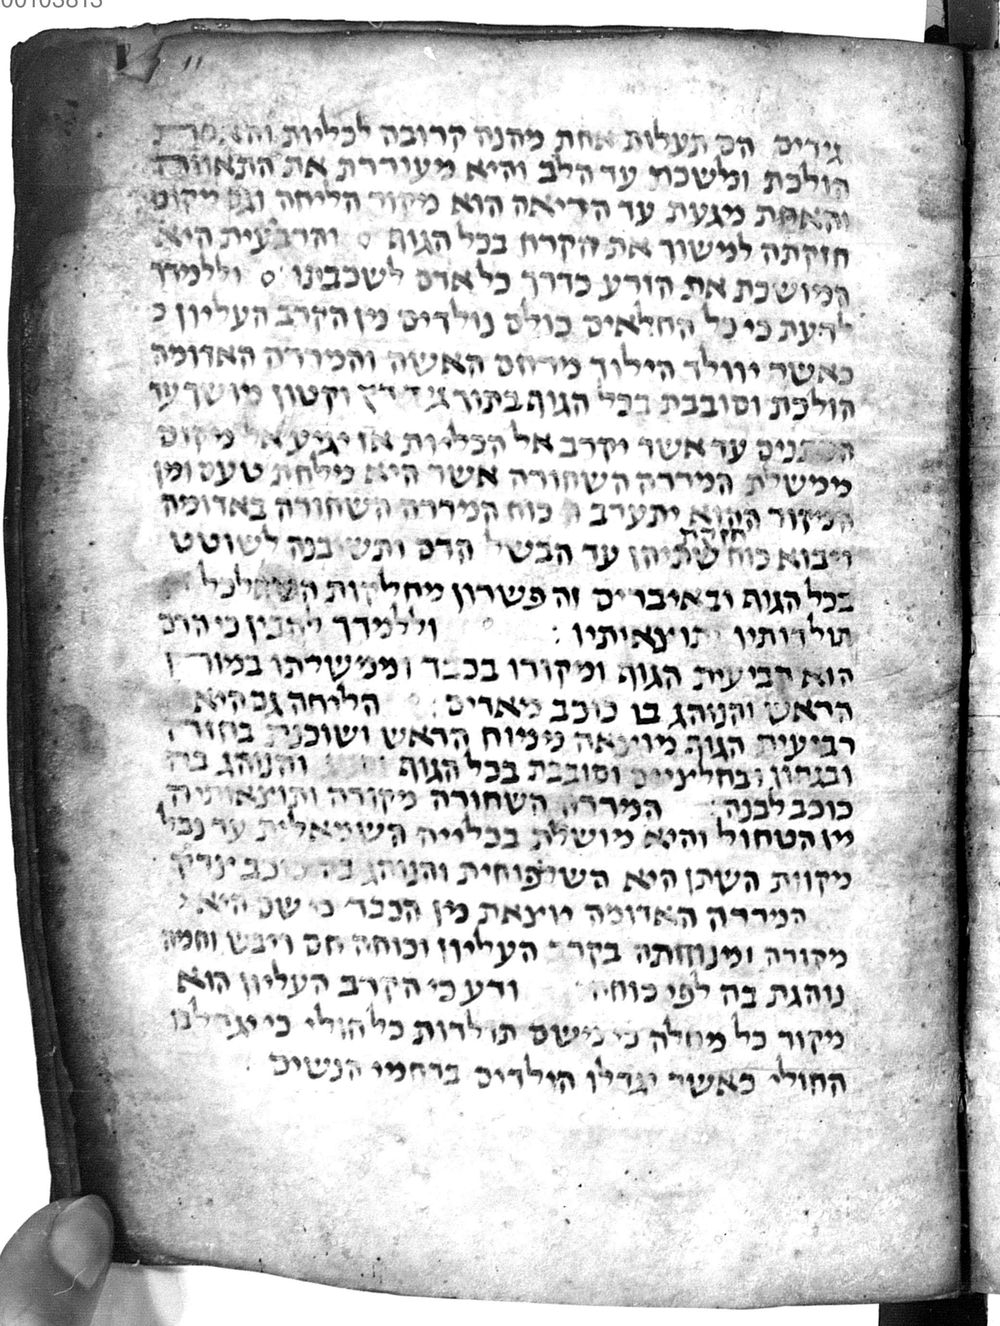 00103813
גידים הם תעלות אחת מהנה קרובה לכליות
הולכת ומשכת עד הלב והיא מעוררת את התאווה
והאחת מגעת עד הריאה הוא מקור הליחה וגם מקום
חזקתה למשור את הקרח בכל הגוף והרבעית היא
המושכת את הזרע כדרך כל אדם לשכבינו וללמדך
לדעת כי כל החלאים כולם נולדים מן הקרב העליון כ
כאשר יוולד הילוד מרחם האשה והמררה האדומה
הולכת וסובבת בכל הגוף בתור גיד דק וקטון מושך עד
המתנים עד אשר יקרב אל הכליות או יגיע אל מקום
ממשלת המררה השחורה אשר היא מלחת טעם ומן
המקור ההוא יתערב כוח המררה השחורה באדומה
חזקת
ויבוא כוח שתיהן עד הבשר הדם ותשובנה לשוטט
בכל הגוף ובאיברים זה פשרון מחלקות
תולדותיו ותוצאותיו : וללמדך להבין כי הדם
הוא רביעית הגוף ומקורו בכבד וממשלתו
הראש והנוהג בו כוכב מאדים : הליחה גם היא
רביעית הגוף מוצאה ממוח הראש ושוכנת בחזה
ובגרון ובחלציים וסובבת בכל הגוף והנוהג בה
כוכב לבנה : המררה השחורה מקורה ותוצאותיה
מן הטחול והיא מושלת בכלייה השמאלית עד
מקוות השתן היא השלפוחית והנוהג בה כוכב
המררה האדומה יוצאת מן הכבד כי שם היא
מקורה ומנוחתה בקרב העליון וכוחה חם ויבש וחמה
נוהגת בה לפי כוחה : ודע כי הקרב העליון הוא
מקור כל מחלה כי משם תולדות כל חולי כי יגדלו
החולי כאשר יגדלו הילדים ברחמי הנשים